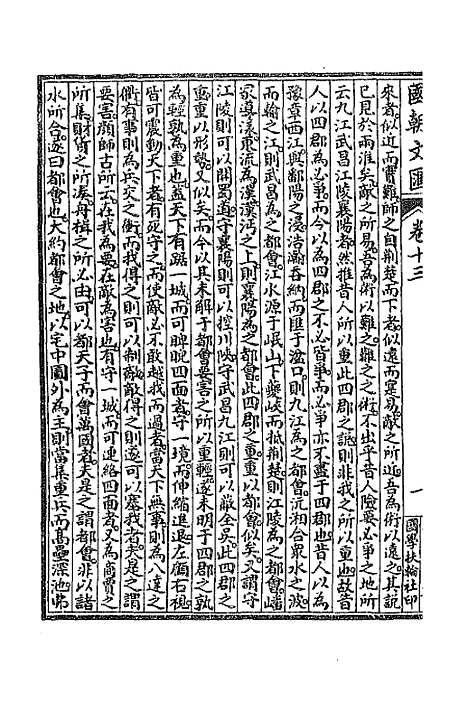 國朝文匯 卷十三 一 國學扶輪社印
來者似近而實難師之自荆楚而下者似遠而寔易敵之所近吾為術以遠之其說
已見於兩淮矣敵之所易吾為術以難之難之之術不出乎昔人險要必爭之地所
云九江武昌江陵襄陽者然推昔人所以重此四郡之說則非我之所以重也故昔
人以四郡為必爭而今以為四郡之不必皆爭而必爭亦不盡于四郡也昔人以為
豫章西江與鄱陽之浸浩瀚吞納而匯于湓口則九江為之都會沅湘合衆水之波
而輸之江則武昌為之都會江水源于岷山下夔峽而抵荆楚則江陵為之都會嶓
冢導漾東流為漢漢沔之上則襄陽為之都會之重重以都會似矣又謂守
江陵則可以開蜀道守襄陽則可以控川陜守武昌九江則可以蔽全吳此四郡之
重重以形勢又似矣而今以其未觧于都會要害之所以重輕遂未明于四郡之孰
為輕孰為重也蓋天下有踞一城而可睥睨四面者守一境而伸縮進退左顧右視
皆可震動天下者有死守之而使敵必不敢越我而過者當天下無事則為八達之
衢有事則為兵交之衝而我得之則可以制敵敵得之則遂可以塞我者夫是之謂
要害顔師古所云在我為要在敵為害也有守一城而可連絡四面者又為商賈之
所集財貨之所湊舟楫之所必由可以都天子而會萬國者夫是之謂都會非以諸
水所合遂曰都會也大約都會之地以宅中圖外為主則當集重兵而高壘深也弗